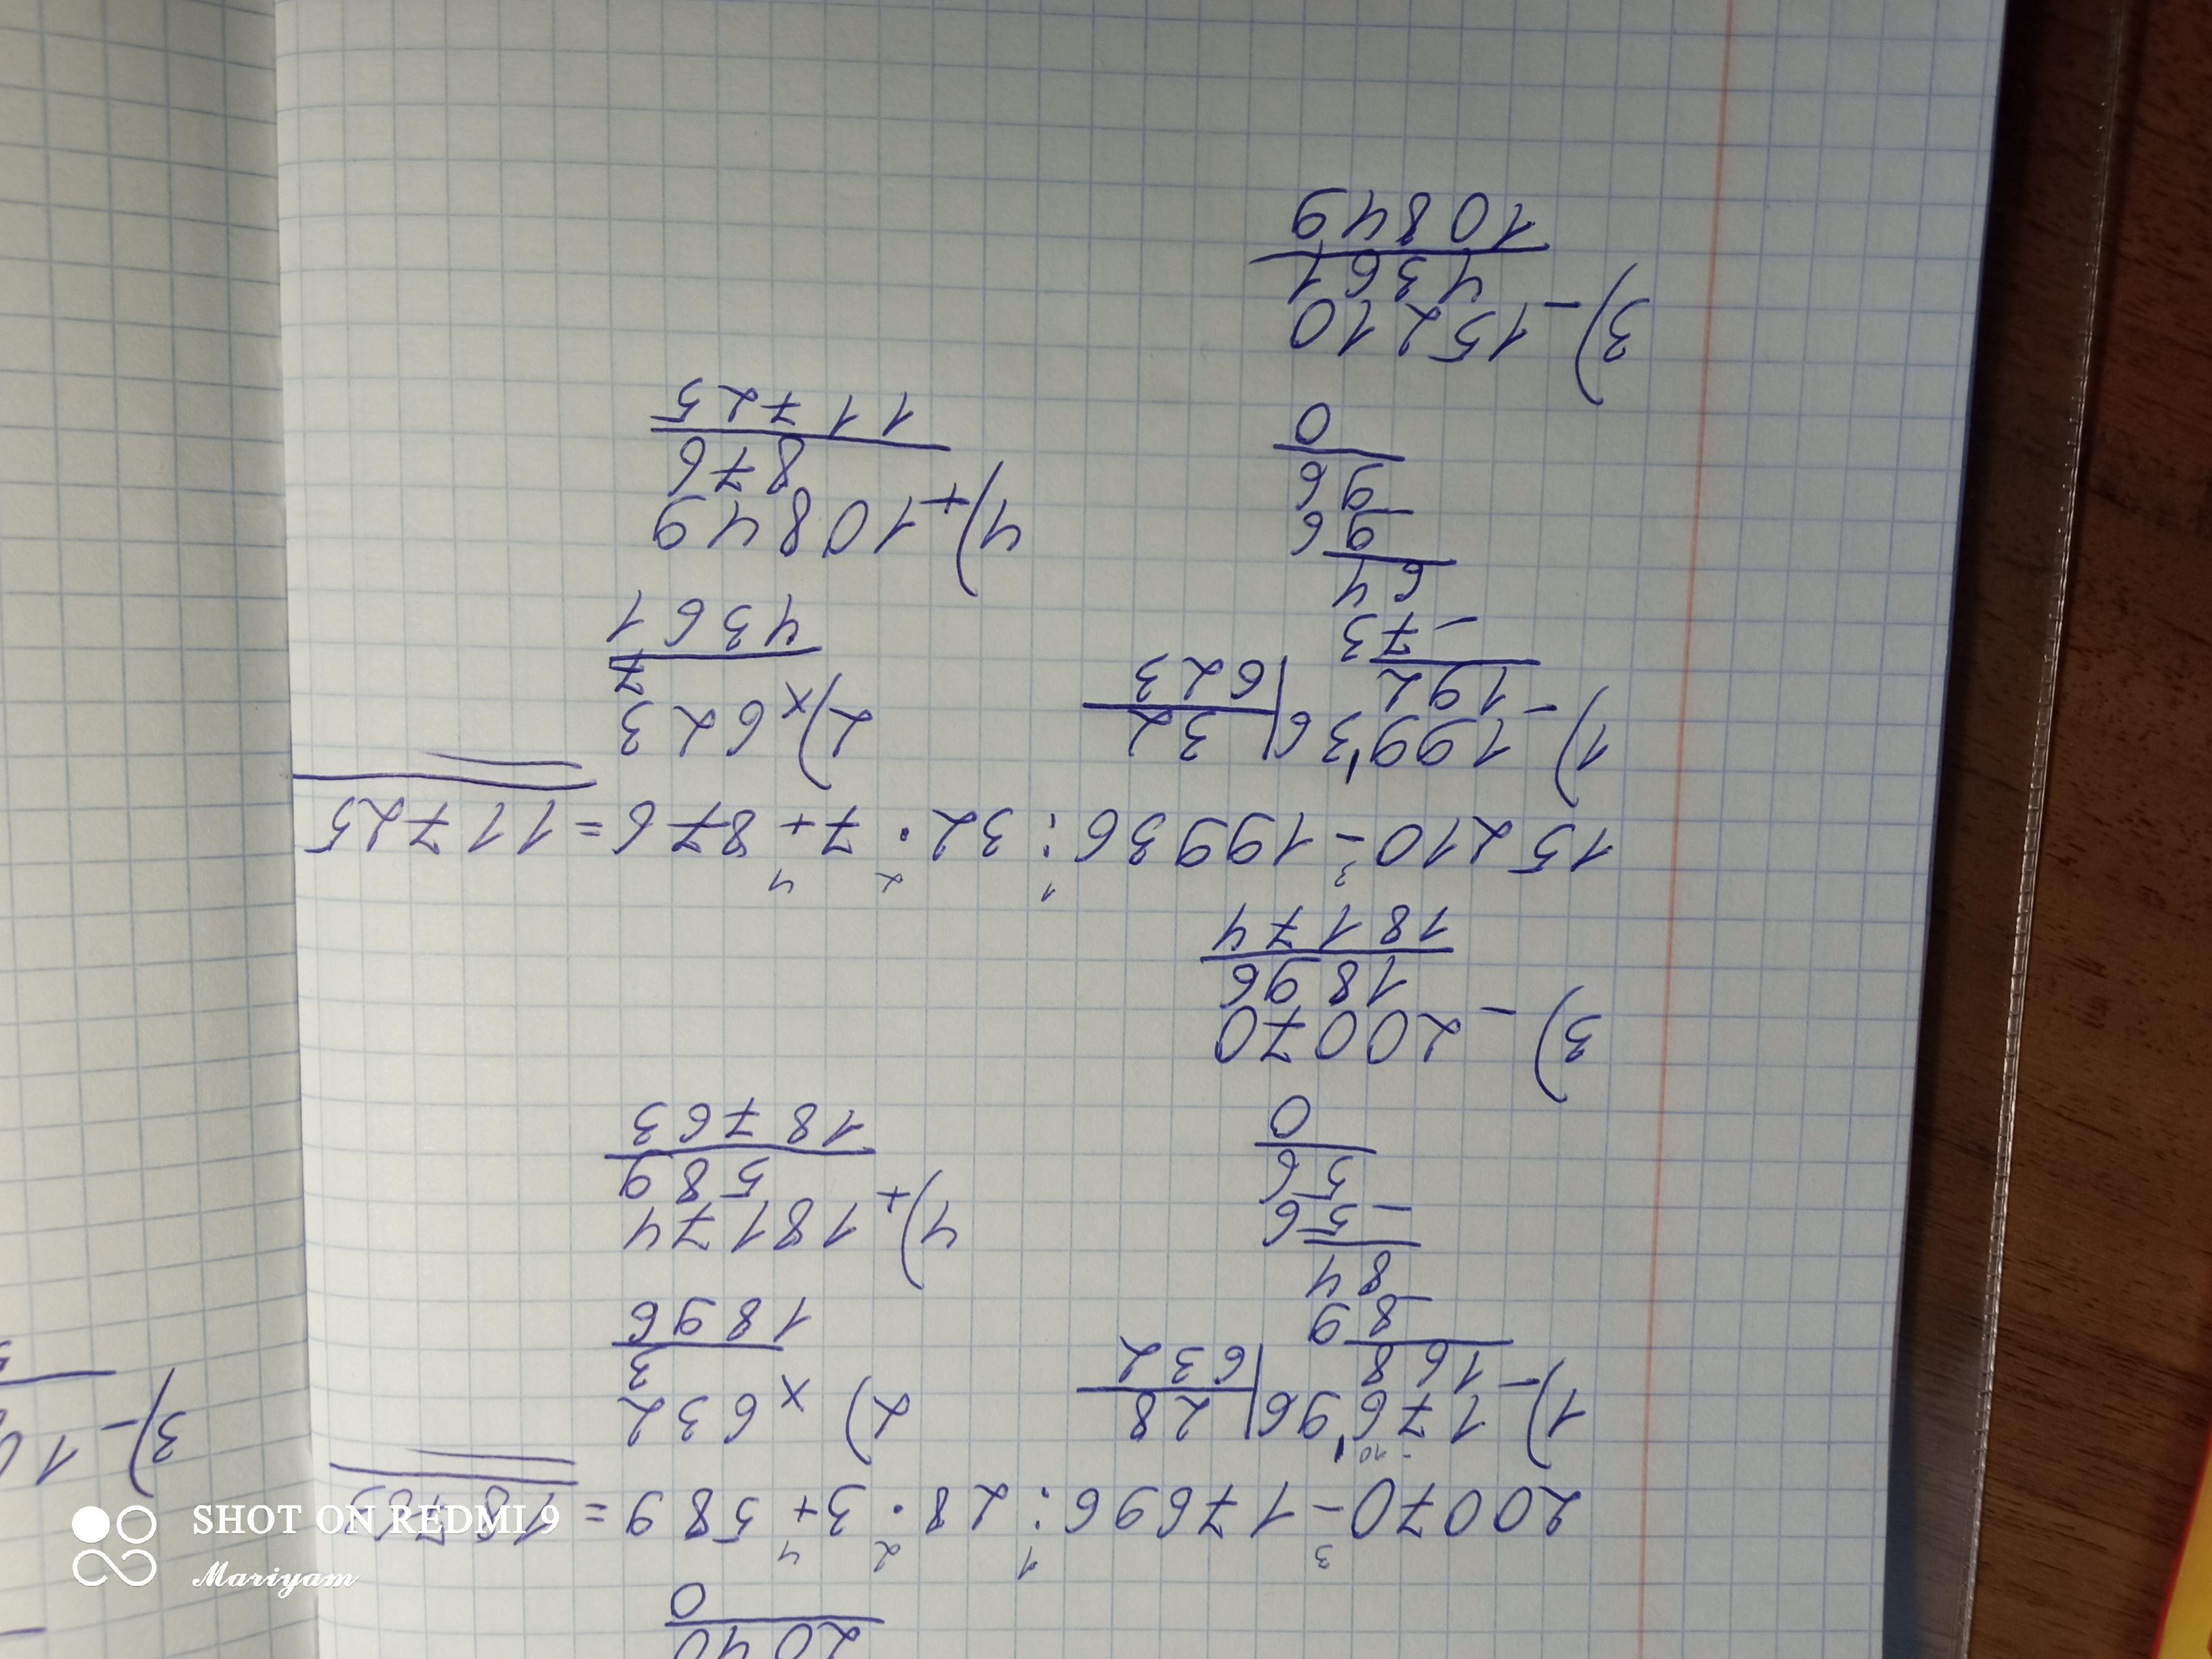 2040
0
20070 - 17696 : 28 · 3 + 589 = 18763
3 1 2 4
1) 17696 | 28
- 168 | 632
- 89
84
- 56
56
0
2) × 632
3
1896
4) + 18174
589
18763
3) - 20070
1896
18174
15210 - 19936 : 32 · 7 + 876 = 11725
3 1 2 4
1) 19936 | 32
- 192 | 623
- 73
64
96
96
0
2) × 623
7
4361
4) + 10849
876
11725
3) - 15210
4361
10849
3) - 10
SHOT ON REDMI 9
Mariyam